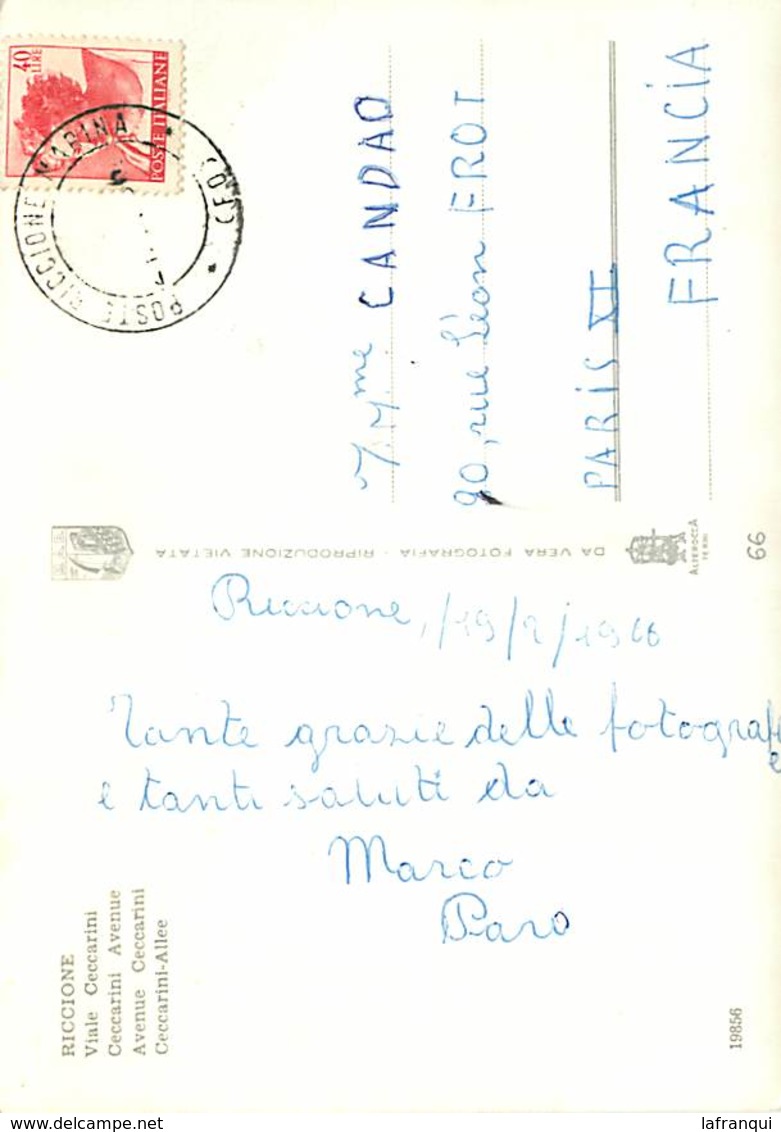 40
LIRE
POSTE ITALIANE
POSTE RICCIONE MARINA * (FO) *
M.me CANDAO
90, rue Léon FROT
PARIS XI
FRANCIA
DA VERA FOTOGRAFIA - RIPRODUZIONE VIETATA
ALTEROCCA
TERNI
66
Riccione, 19/2/1966
Tante grazie delle fotografi
e
e tanti saluti da
Marco
Paro
RICCIONE
Viale Ceccarini
Ceccarini Avenue
Avenue Ceccarini
Ceccarini-Allee
19856
lafranqui